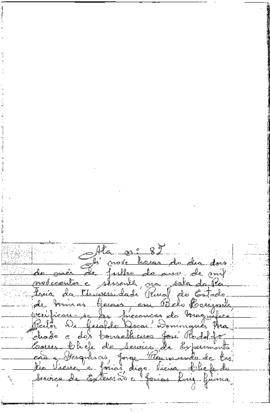 Ata nº 82
Às nove horas do dia dois
do mês de julho do ano de mil
novecentos e sessenta, na sala da Rei
toria da Universidade Rural do Estado
de Minas Gerais em Belo Horizonte
verificou-se as presenças do Magnífico
Reitor Dr Geraldo Oscar Domingues Ma
chado e dos Conselheiros José Rodolfo
Torres Chefe do Serviço de Experimenta
ção e Pesquisas, Jorge
Vieira e digo Vieira Chefe do
Serviço de Extensão e